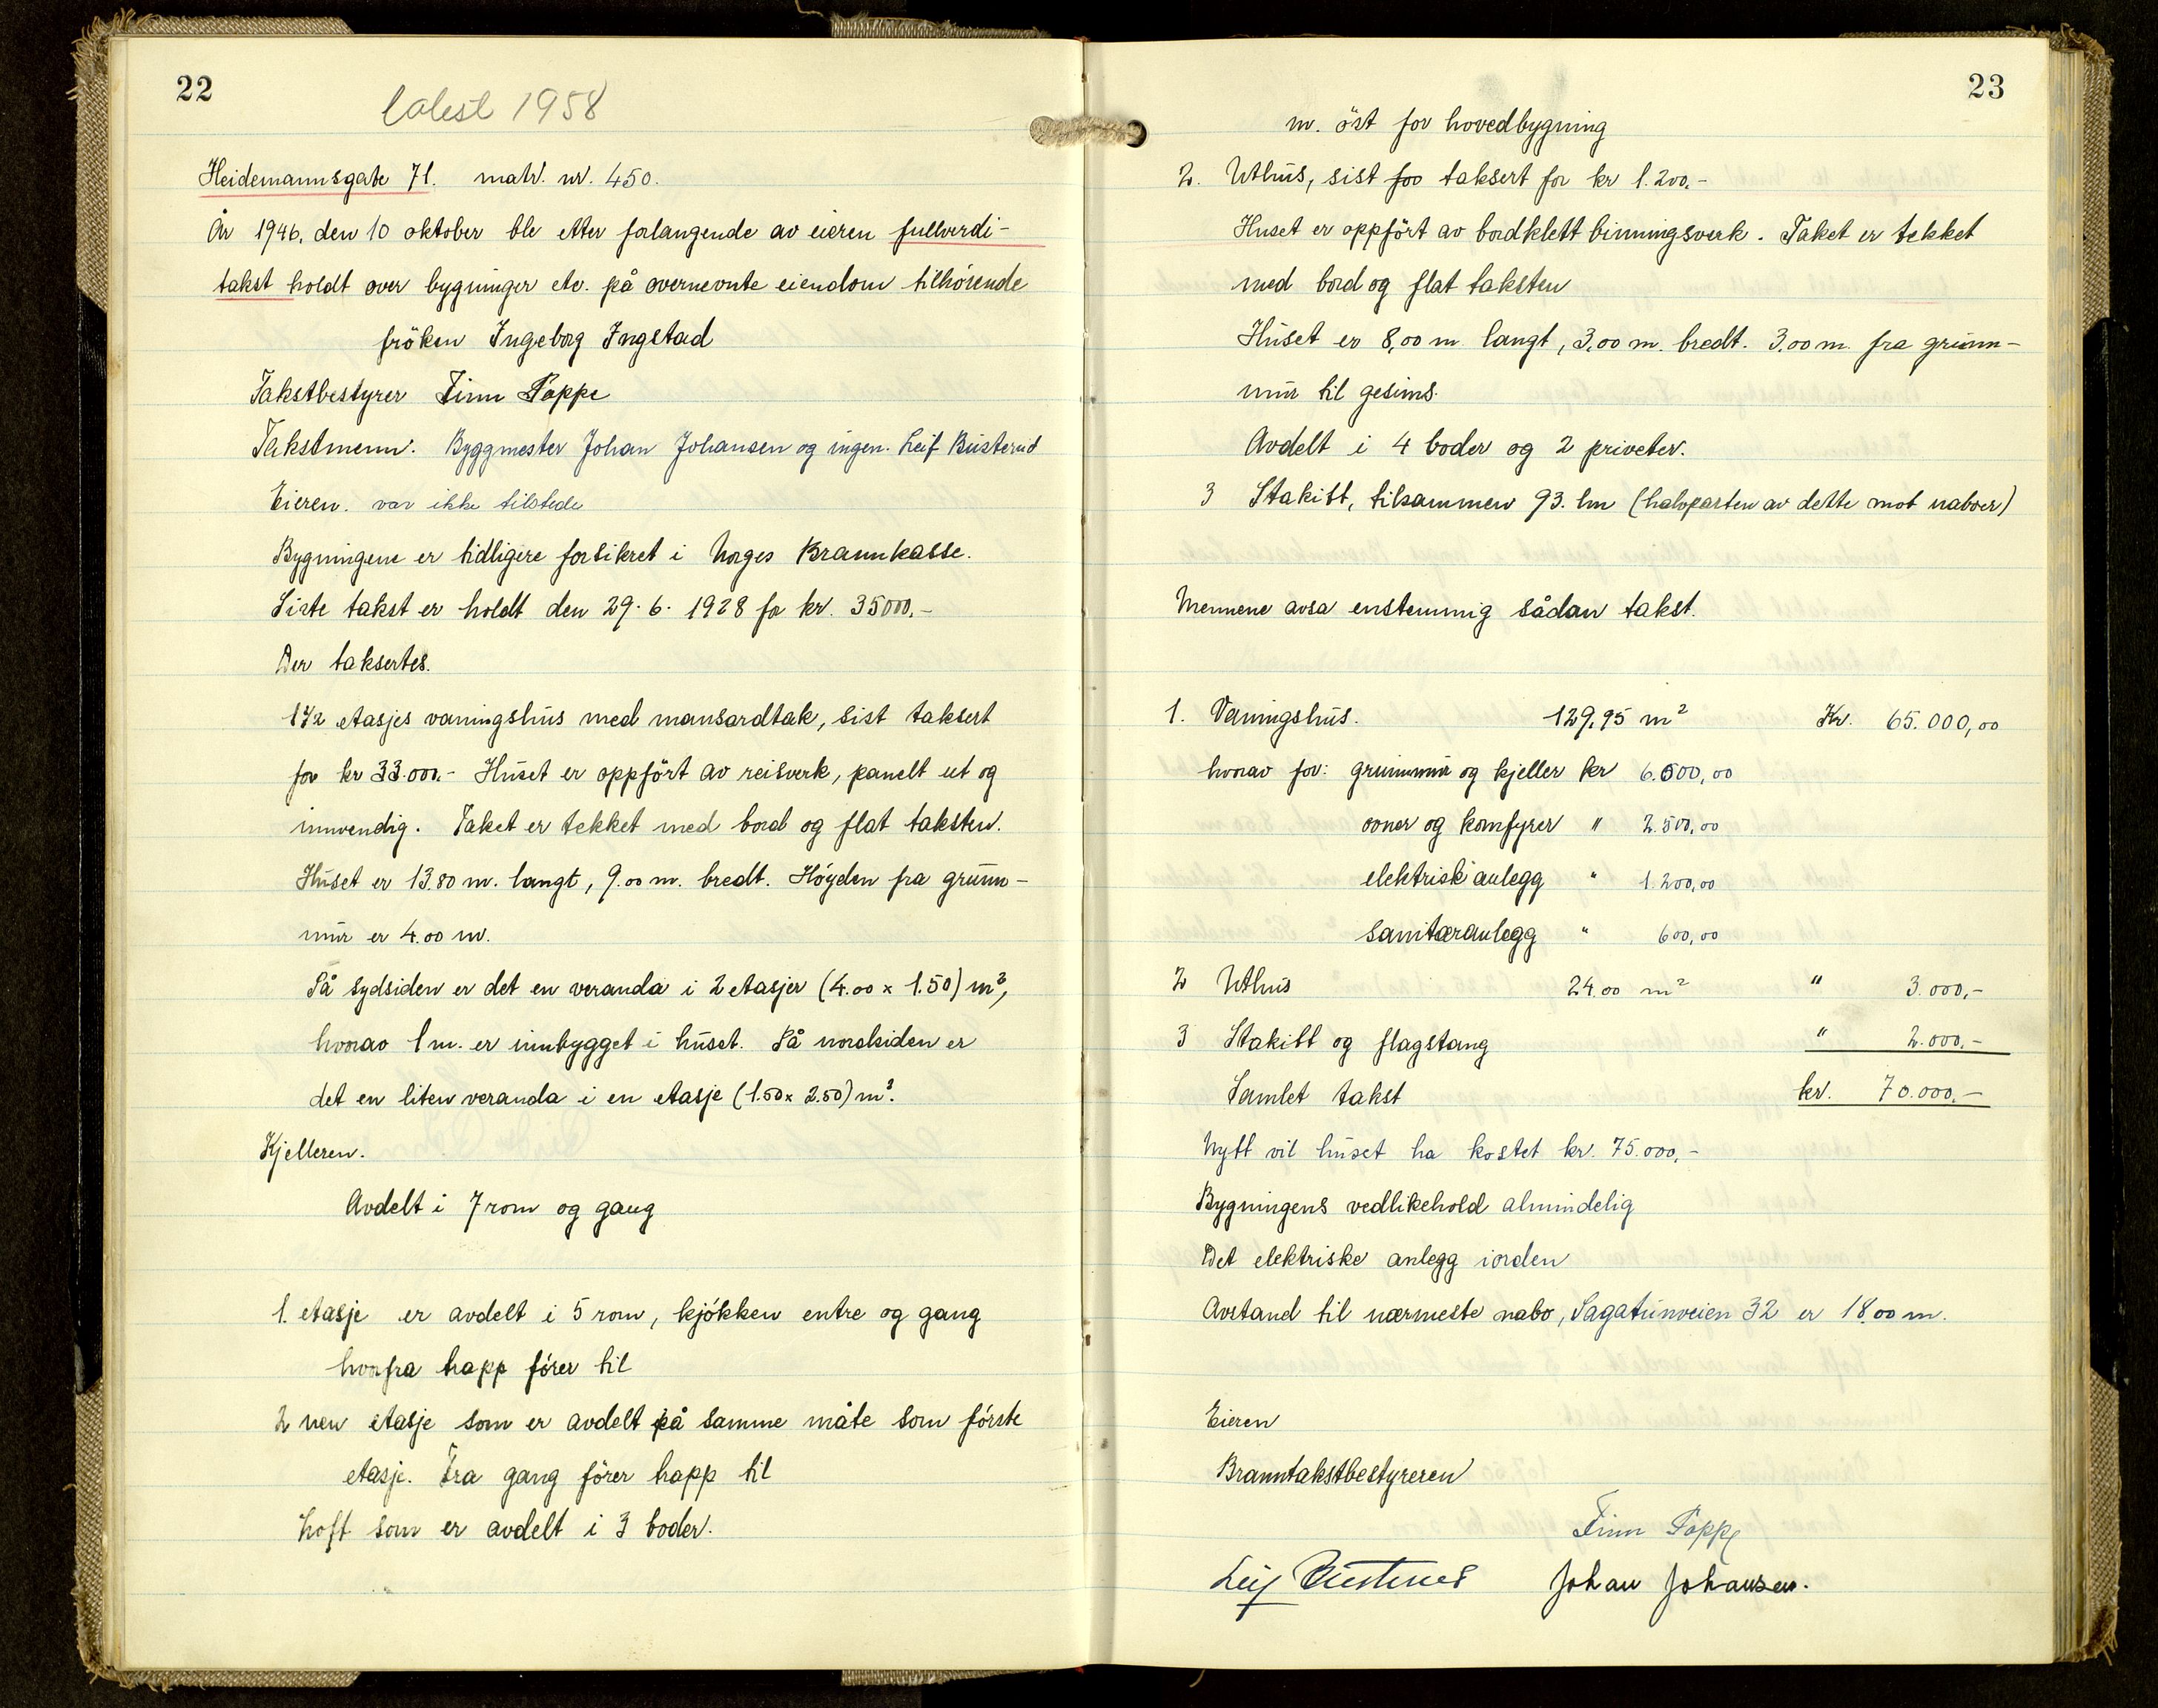 22
1958
Heidemannsgate 71. matr. nr. 450.
År 1946, den 10 oktober ble etter forlangende av eieren fullverdi-
takst holdt over bygninger etc. på overnevnte eiendom tilhörende
fröken Ingeborg Ingstad
Takstbestyrer Finn Poppe
Takstmenn: Byggmester Johan Johansen og ingen. Leif Busterud
Eieren. var ikke tilstede
Bygningene er tidligere forsikret i Norges Brannkasse.
Siste takst er holdt den 29. 6. 1928 for kr. 35000.-
Der taksertes.
1 1/2 etasjes vaningshus med mansardtak, sist taksert
for kr 33.000.- Huset er oppfört av reisverk, panelt ut og
innvendig. Taket er tekket med bord og flat taksten.
Huset er 13.80 m. langt, 9.00 m. bredt. Höyden fra grunn-
mur er 4.00 m.
På sydsiden er det en veranda i 2 etasjer (4.00 x 1.50) m²,
hvorav 1 m. er innbygget i huset. På nordsiden er
det en liten veranda i en etasje (1.50 x 2.50) m².
Kjelleren.
Avdelt i 7 rom og gang
1. etasje er avdelt i 5 rom, kjökken entre og gang
hvorfra trapp förer til
2 nen etasje som er avdelt på samme måte som förste
etasje. Fra gang förer trapp til
Loft som er avdelt i 3 boder.
23
m. öst for hovedbygning
2. Uthus, sist for taksert for kr 1.200.-
Huset er oppfört av bordklett binningsverk. Taket er tekket
med bord og flat taksten
Huset er 8,00 m langt, 3,00 m. bredt. 3,00 m. fra grunn-
mur til gesims.
Avdelt i 4 boder og 2 priveter.
3 Stakitt, tilsammen 93. lm (halvparten av dette mot naboer)
Mennene avsa enstemmig sådan takst.
1. Vaningshus. 129,95 m² Kr. 65.000,00
hvorav for: grunnmur og kjeller kr 6.500,00
ovner og komfyrer " 2.500,00
elektrisk anlegg " 1.200,00
sanitæranlegg " 600,00
2 Uthus 24.00 m² " 3.000,-
3 Stakitt og flagstang " 2.000,-
Samlet takst kr. 70.000.-
Nytt vil huset ha kostet kr. 75.000,-
Bygningens vedlikehold almindelig
Det elektriske anlegg iorden
Avstand til nærmeste nabo, Sagatunveien 32 er 18,00 m.
Eieren
Branntakstbestyreren
Finn Poppe
Leif Busterud Johan Johansen.